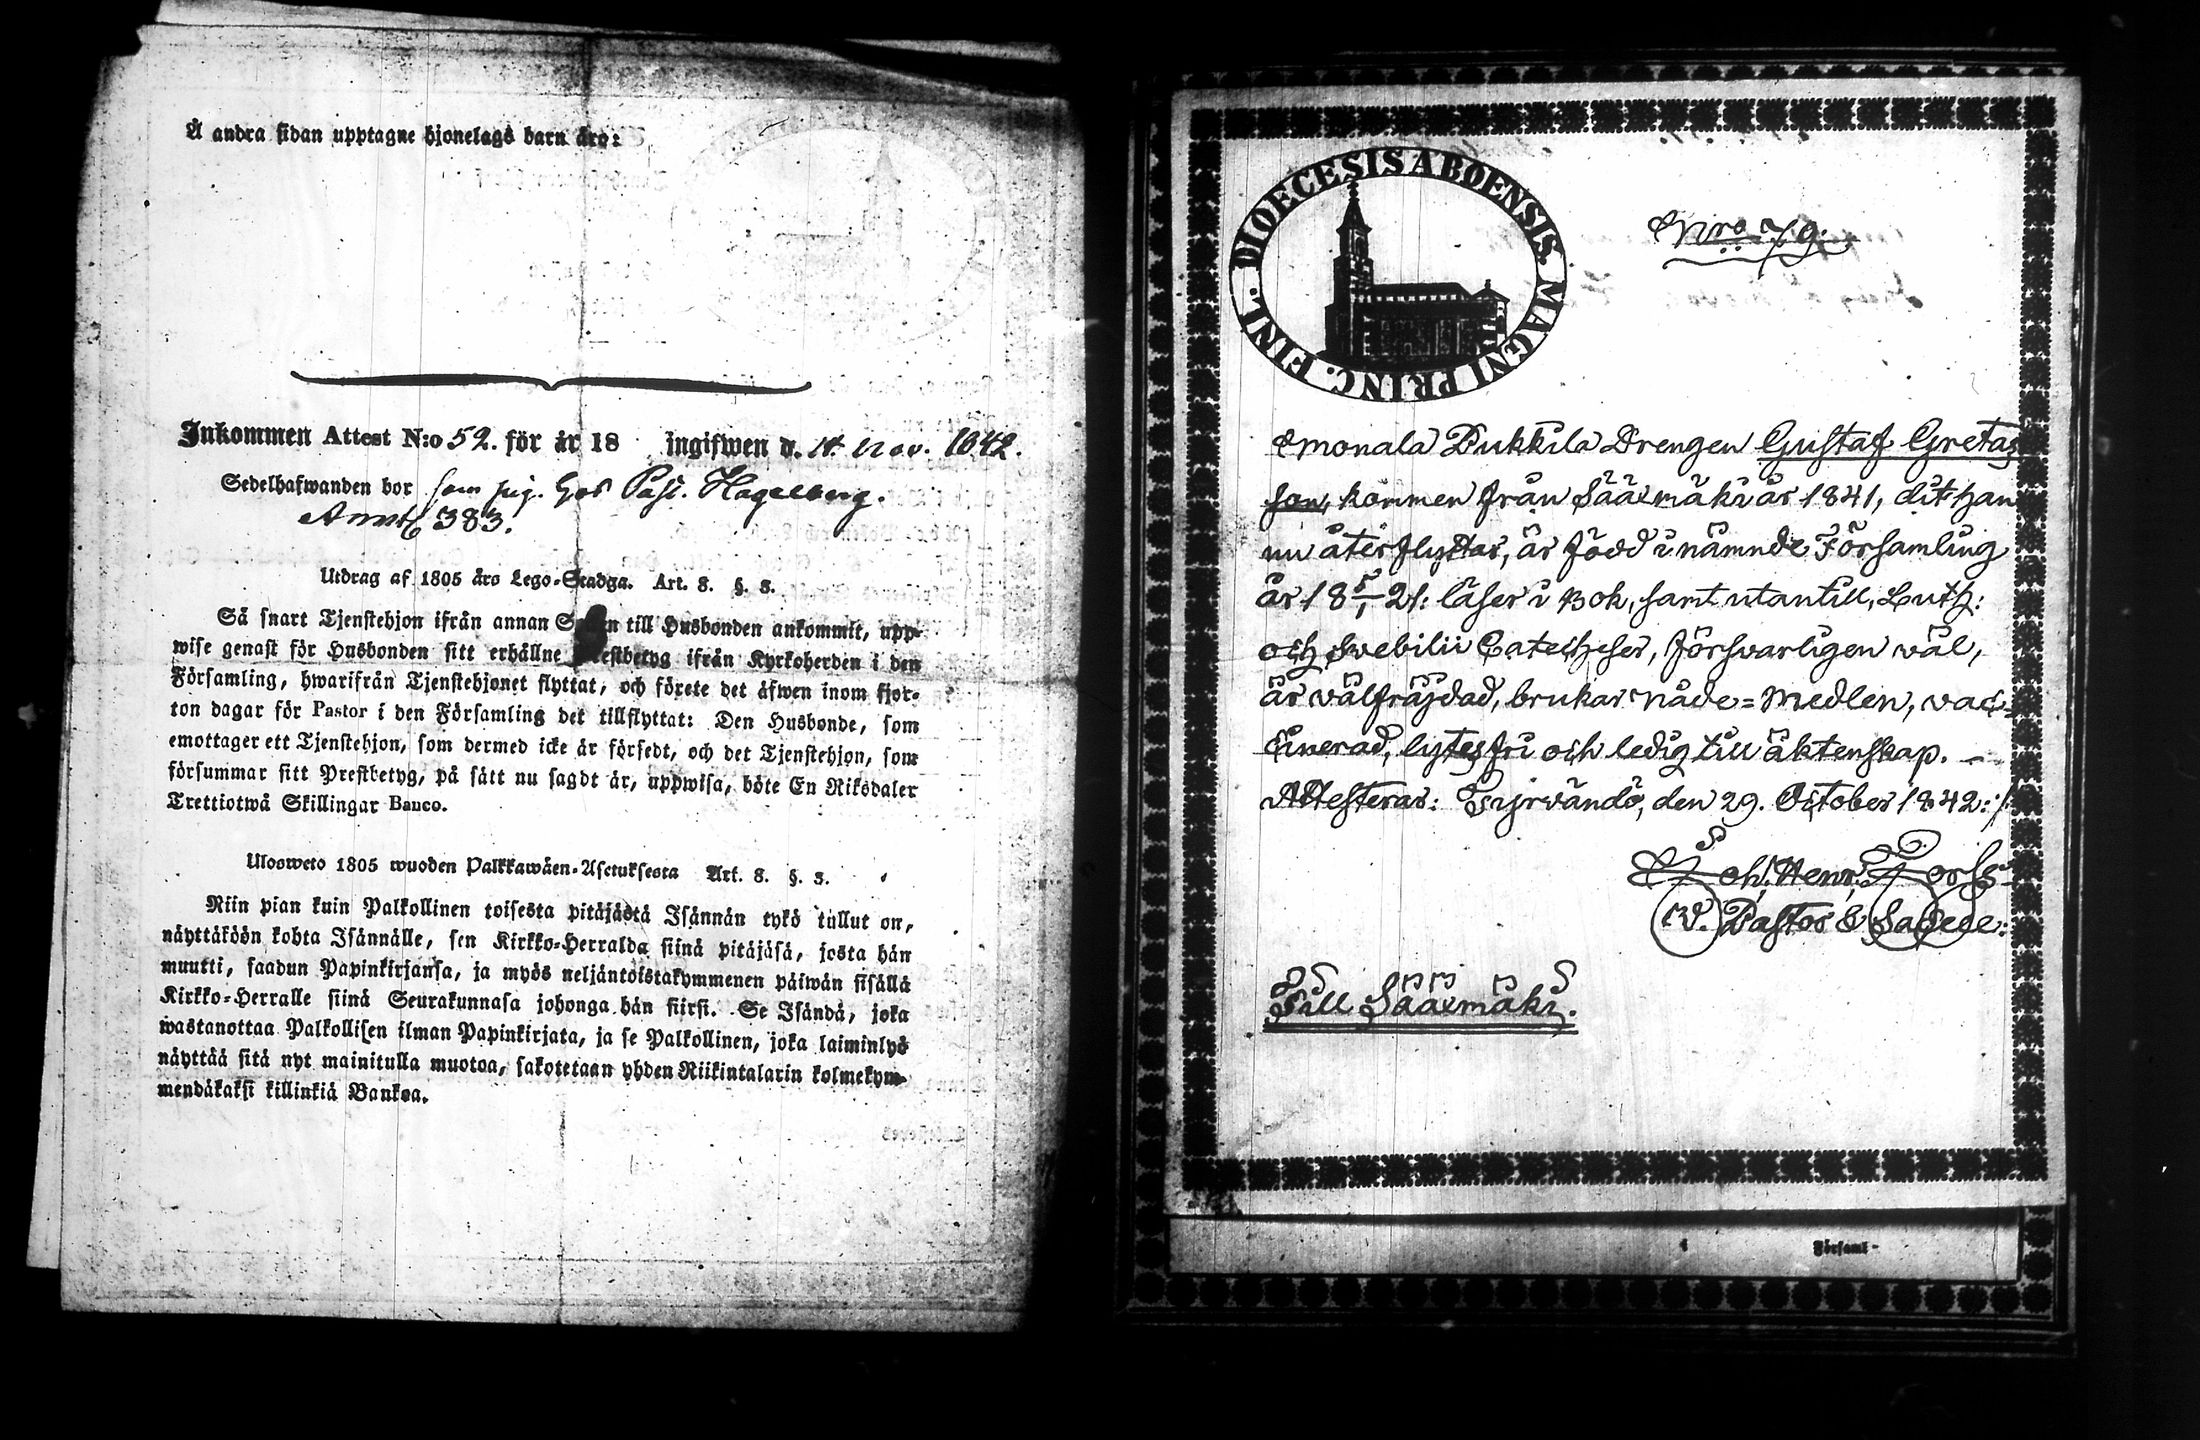 Å andra sidan upptagne hjonelags barn äro:
Inkommen Attest N:o 52. för år 18 ingifwen d. 14. Nov. 1842.
Sedelhafwanden bor som pig. hos Past. Hagelberg.
383.
Utdrag af 1805 års Lego-Stadga. Art. 3. §. 3.
Så snart Tjenstehjon ifrån annan till Husbonden ankommit, upp-
wise genast för Husbonden sitt erhållne Prestbetyg ifrån Kyrkoherden i den
Församling, hwarifrån Tjenstehjonet flyttat, och förete det äfwen inom fjor-
ton dagar för Pastor i den Församling det tillflyttat: Den Husbonde, som
emottager ett Tjenstehjon, som dermed icke är försedt, och det Tjenstehjon, som
försummar sitt Prestbetyg, på sätt nu sagdt är, uppwisa, böte En Riksdaler
Trettiotwå Skillingar Banco.
Ulosweto 1805 wuoden Palkkawäen-Asetuksesta Art. 3. §. 3.
Niin pian kuin Palkollinen toisesta pitäjästä Isännän tykö tullut on,
näyttäköön kohta Isännälle, sen Kirkko-Herralda siinä pitäjäsä, josta hän
muutti, saadun Papinkirjansa, ja myös neljäntoistakymmenen päiwän sisällä
Kirkko-Herralle siinä Seurakunnasa johonga hän siirsi. Se Isändä, joka
wastanottaa Palkollisen ilman Papinkirjata, ja se Palkollinen, joka laiminlyö
näyttää sitä nyt mainitulla muotoa, sakotetaan yhden Riikintalarin kolmekym-
mendäkaksi killinkiä Bankoa.
DIOECESIS ABOENSIS. MAGNI PRINC. FINL.
Nro 79.
Monala Pukkila Drengen Gustaf Gretas
son, kommen från Sääxmäki år 1841, dit han
nu återflyttar, är född i nämnde Församling
år 18 5/1 21: läser i Bok, samt utantill, Luth:
och Svebilii Catecheser, försvarligen väl,
är välfräjdad, brukar Nåde=Medlen, vac-
cinerad, lytesfri och ledig till äktenskap. —
Attesteras: Tyrvändö, den 29. October 1842:/:
Joh. Henr. Forss
V. Pastor & Sacell:
Till Sääxmäki.
Församl-